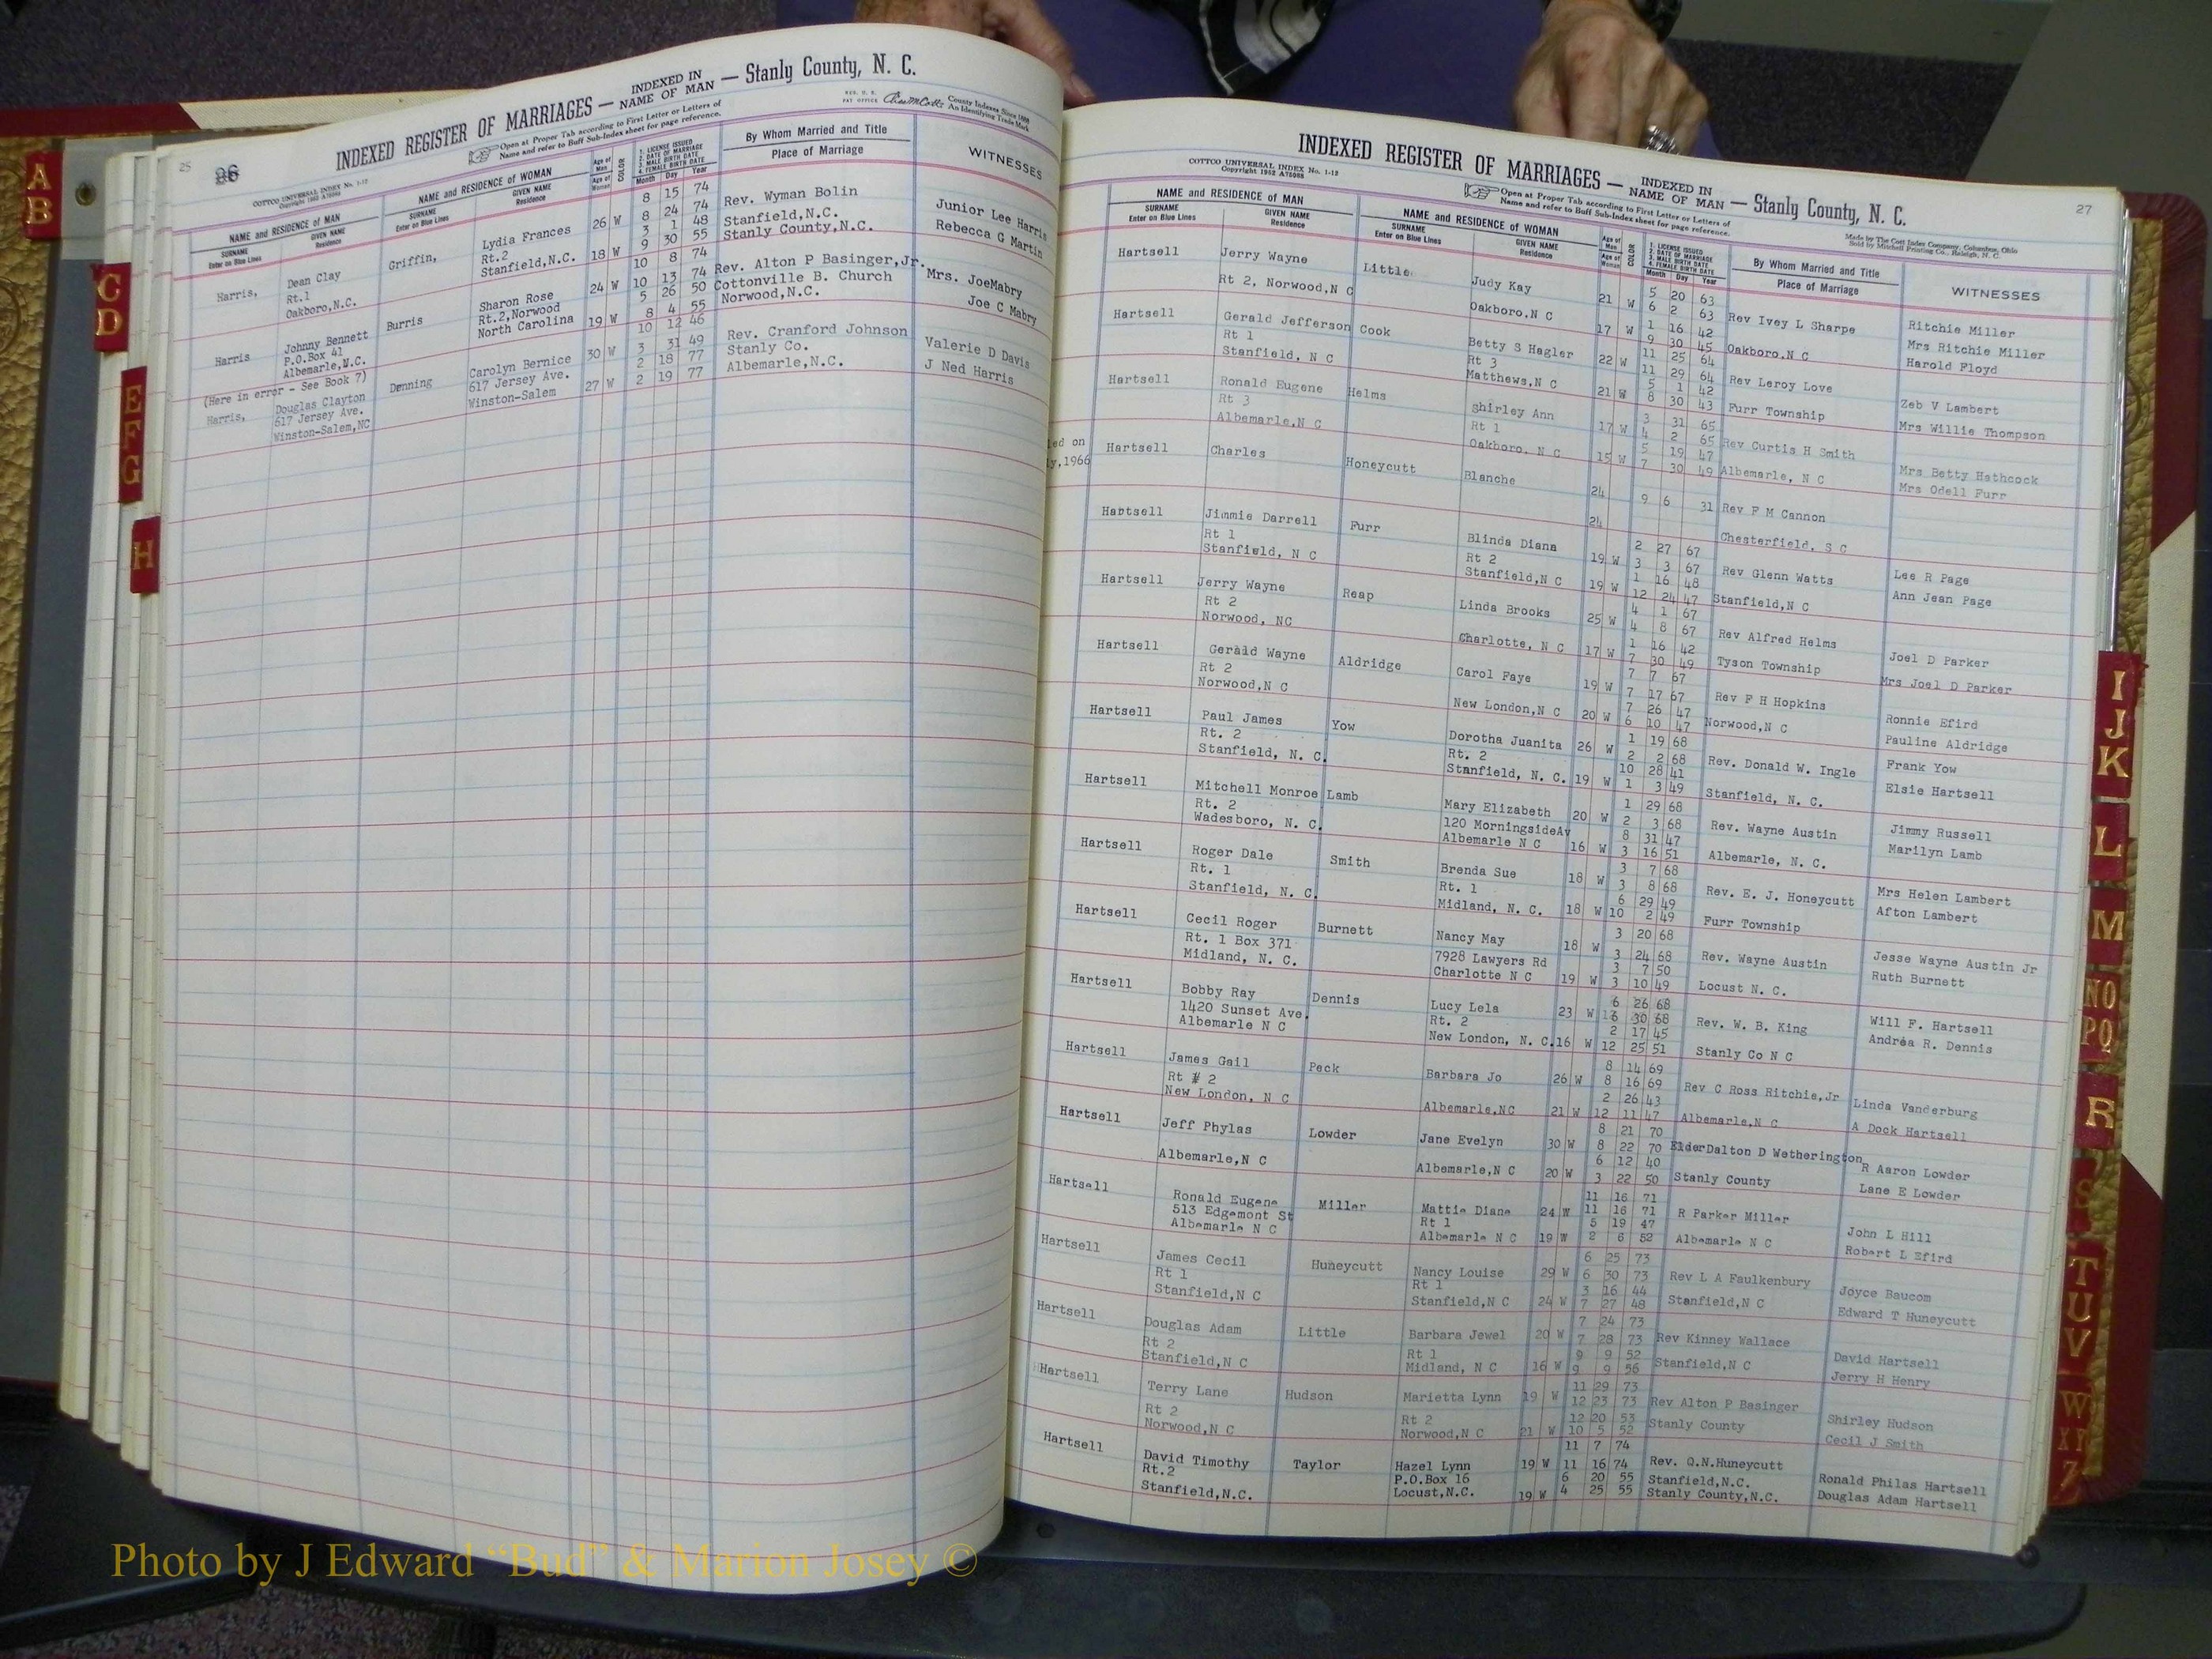 A
B
C
D
E
F
G
H
25 26
INDEXED REGISTER OF MARRIAGES — INDEXED IN NAME OF MAN — Stanly County, N. C.
COTTCO UNIVERSAL INDEX No. 1-12
Open at Proper Tab according to First Letter or Letters of
Name and refer to Buff Sub-Index sheet for page reference.
County Indexes Since 1888
An Identifying Trade Mark
NAME and RESIDENCE OF MAN
SURNAME GIVEN NAME
Enter on Blue Lines Residence
NAME and RESIDENCE OF WOMAN
SURNAME GIVEN NAME
Enter on Blue Lines Residence
Age of Man
Age of Woman
COLOR
1. LICENSE ISSUED
2. DATE OF MARRIAGE
3. MALE BIRTH DATE
4. FEMALE BIRTH DATE
Month Day Year
By Whom Married and Title
Place of Marriage
WITNESSES
Harris, Dean Clay Griffin, Lydia Frances 26 W 8 15 74 Rev. Wyman Bolin Junior Lee Harris
Rt.1 Rt.2 8 24 74 Stanfield,N.C. Rebecca G Martin
Oakboro,N.C. Stanfield,N.C. 18 W 3 1 48 Stanly County,N.C.
9 30 55
Harris Johnny Bennett Burris Sharon Rose 24 W 10 8 74 Rev. Alton P Basinger,Jr. Mrs. JoeMabry
P.O.Box 41 Rt.2,Norwood 10 13 74 Cottonville B. Church Joe C Mabry
Albemarle,N.C. North Carolina 19 W 5 26 50 Norwood,N.C.
8 4 55
(Here in error - See Book 7)
10 12 46
Harris, Douglas Clayton Denning Carolyn Bernice 30 W 3 31 49 Rev. Cranford Johnson Valerie D Davis
617 Jersey Ave. 617 Jersey Ave. 2 18 77 Stanly Co. J Ned Harris
Winston-Salem,NC Winston-Salem 27 W 2 19 77 Albemarle,N.C.
INDEXED REGISTER OF MARRIAGES — INDEXED IN NAME OF MAN — Stanly County, N. C.
27
COTTCO UNIVERSAL INDEX No. 1-12
Open at Proper Tab according to First Letter or Letters of
Name and refer to Buff Sub-Index sheet for page reference.
Made by The Cott Index Company, Columbus, Ohio
Sold by Mitchell Printing Co., Raleigh, N. C.
NAME and RESIDENCE OF MAN
SURNAME GIVEN NAME
Enter on Blue Lines Residence
NAME and RESIDENCE OF WOMAN
SURNAME GIVEN NAME
Enter on Blue Lines Residence
Age of Man
Age of Woman
COLOR
1. LICENSE ISSUED
2. DATE OF MARRIAGE
3. MALE BIRTH DATE
4. FEMALE BIRTH DATE
Month Day Year
By Whom Married and Title
Place of Marriage
WITNESSES
Hartsell Jerry Wayne Little Judy Kay 21 W 5 20 63 Rev Ivey L Sharpe Ritchie Miller
6 2 63 Mrs Ritchie Miller
Rt 2, Norwood,N C Oakboro,N C 17 W 1 16 42 Oakboro,N C Harold Floyd
9 30 45
Hartsell Gerald Jefferson Cook Betty S Hagler 22 W 11 25 64 Rev Leroy Love Zeb V Lambert
Rt 1 Rt 3 11 29 64
Stanfield, N C Matthews,N C 21 W 5 1 42 Furr Township Mrs Willie Thompson
8 30 43
Hartsell Ronald Eugene Helms Shirley Ann 17 W 3 31 65 Rev Curtis H Smith Mrs Betty Hathcock
Rt 3 Rt 1 4 2 65
Albemarle,N C Oakboro, N C 15 W 5 19 47 Albemarle, N C Mrs Odell Furr
7 30 49
ed on
y,1966
Hartsell Charles Honeycutt Blanche 24 9 6 31 Rev F M Cannon
24 Chesterfield, S C
Hartsell Jimmie Darrell Furr Blinda Diana 19 W 2 27 67 Rev Glenn Watts Lee R Page
Rt 1 Rt 2 3 3 67
Stanfield, N C Stanfield,N C 19 W 1 16 48 Stanfield,N C Ann Jean Page
12 24 47
Hartsell Jerry Wayne Reap Linda Brooks 25 W 4 1 67 Rev Alfred Helms Joel D Parker
Rt 2 4 8 67
Norwood, NC Charlotte, N C 17 W 1 16 42 Tyson Township Mrs Joel D Parker
7 30 49
Hartsell Gerald Wayne Aldridge Carol Faye 19 W 7 7 67 Rev F H Hopkins Ronnie Efird
Rt 2 7 17 67
Norwood,N C New London,N C 20 W 7 26 47 Norwood,N C Pauline Aldridge
6 10 47
Hartsell Paul James Yow Dorotha Juanita 26 W 1 19 68 Rev. Donald W. Ingle Frank Yow
Rt. 2 Rt. 2 2 2 68
Stanfield, N. C. Stanfield, N. C. 19 W 10 28 41 Stanfield, N. C. Elsie Hartsell
1 3 49
Hartsell Mitchell Monroe Lamb Mary Elizabeth 20 W 1 29 68 Rev. Wayne Austin Jimmy Russell
Rt. 2 120 MorningsideAv 2 3 68
Wadesboro, N. C. Albemarle N C 16 W 8 31 47 Albemarle, N. C. Marilyn Lamb
3 16 51
Hartsell Roger Dale Smith Brenda Sue 18 W 3 7 68 Rev. E. J. Honeycutt Mrs Helen Lambert
Rt. 1 Rt. 1 3 8 68
Stanfield, N. C. Midland, N. C. 18 W 6 29 49 Furr Township Afton Lambert
10 2 49
Hartsell Cecil Roger Burnett Nancy May 18 W 3 20 68 Rev. Wayne Austin Jesse Wayne Austin Jr
Rt. 1 Box 371 7928 Lawyers Rd 3 24 68
Midland, N. C. Charlotte N C 19 W 3 7 50 Locust N. C. Ruth Burnett
3 10 49
Hartsell Bobby Ray Dennis Lucy Lela 23 W 6 26 68 Rev. W. B. King Will F. Hartsell
1420 Sunset Ave. Rt. 2 6 30 68
Albemarle N C New London, N. C. 16 W 2 17 45 Stanly Co N C Andréa R. Dennis
12 25 51
Hartsell James Gail Peck Barbara Jo 26 W 8 14 69 Rev C Ross Ritchie,Jr Linda Vanderburg
Rt # 2 8 16 69
New London, N C Albemarle,NC 21 W 2 26 43 Albemarle,N C A Dock Hartsell
12 11 47
Hartsell Jeff Phylas Lowder Jane Evelyn 30 W 8 21 70 ElderDalton D Wetherington R Aaron Lowder
8 22 70
Albemarle,N C Albemarle,N C 20 W 6 12 40 Stanly County Lane E Lowder
3 22 50
Hartsell Ronald Eugene Miller Mattie Diane 24 W 11 16 71 R Parker Miller John L Hill
513 Edgemont St Rt 1 11 16 71
Albemarle N C Albemarle N C 19 W 5 19 47 Albemarle N C Robert L Efird
2 6 52
Hartsell James Cecil Huneycutt Nancy Louise 29 W 6 25 73 Rev L A Faulkenbury Joyce Baucom
Rt 1 Rt 1 6 30 73
Stanfield,N C Stanfield,N C 24 W 3 16 44 Stanfield,N C Edward T Huneycutt
7 27 48
Hartsell Douglas Adam Little Barbara Jewel 20 W 7 24 73 Rev Kinney Wallace David Hartsell
Rt 2 Rt 1 7 28 73
Stanfield,N C Midland, N C 16 W 9 9 52 Stanfield,N C Jerry H Henry
9 9 56
Hartsell Terry Lane Hudson Marietta Lynn 19 W 11 29 73 Rev Alton P Basinger Shirley Hudson
Rt 2 Rt 2 12 23 73
Norwood,N C Norwood,N C 21 W 12 20 53 Stanly County Cecil J Smith
10 5 52
Hartsell David Timothy Taylor Hazel Lynn 19 W 11 7 74 Rev. Q.N.Huneycutt Ronald Philas Hartsell
Rt.2 P.O.Box 16 11 16 74 Stanfield,N.C. Douglas Adam Hartsell
Stanfield,N.C. Locust,N.C. 19 W 6 20 55 Stanly County,N.C.
4 25 55
I
J
K
L
M
NO
PQ
R
S
T
U
V
W
X Y
Z
Photo by J Edward “Bud” & Marion Josey ©